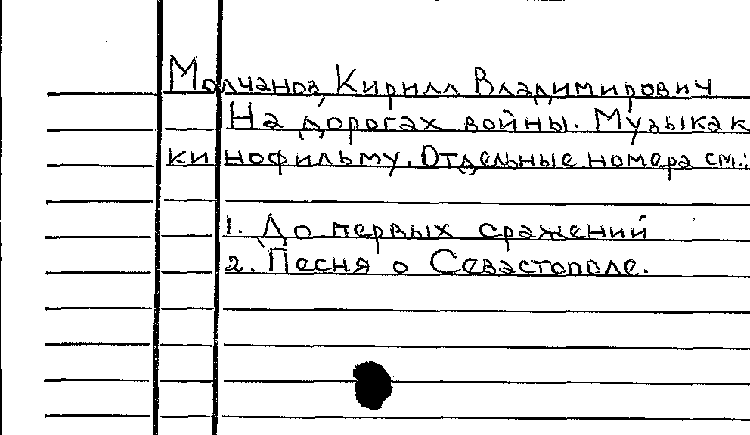 Молчанов, Кирилл Владимирович
На дорогах войны. Музыка к
кинофильму. Отдельные номера см.:
1. До первых сражений
2. Песня о Севастополе.